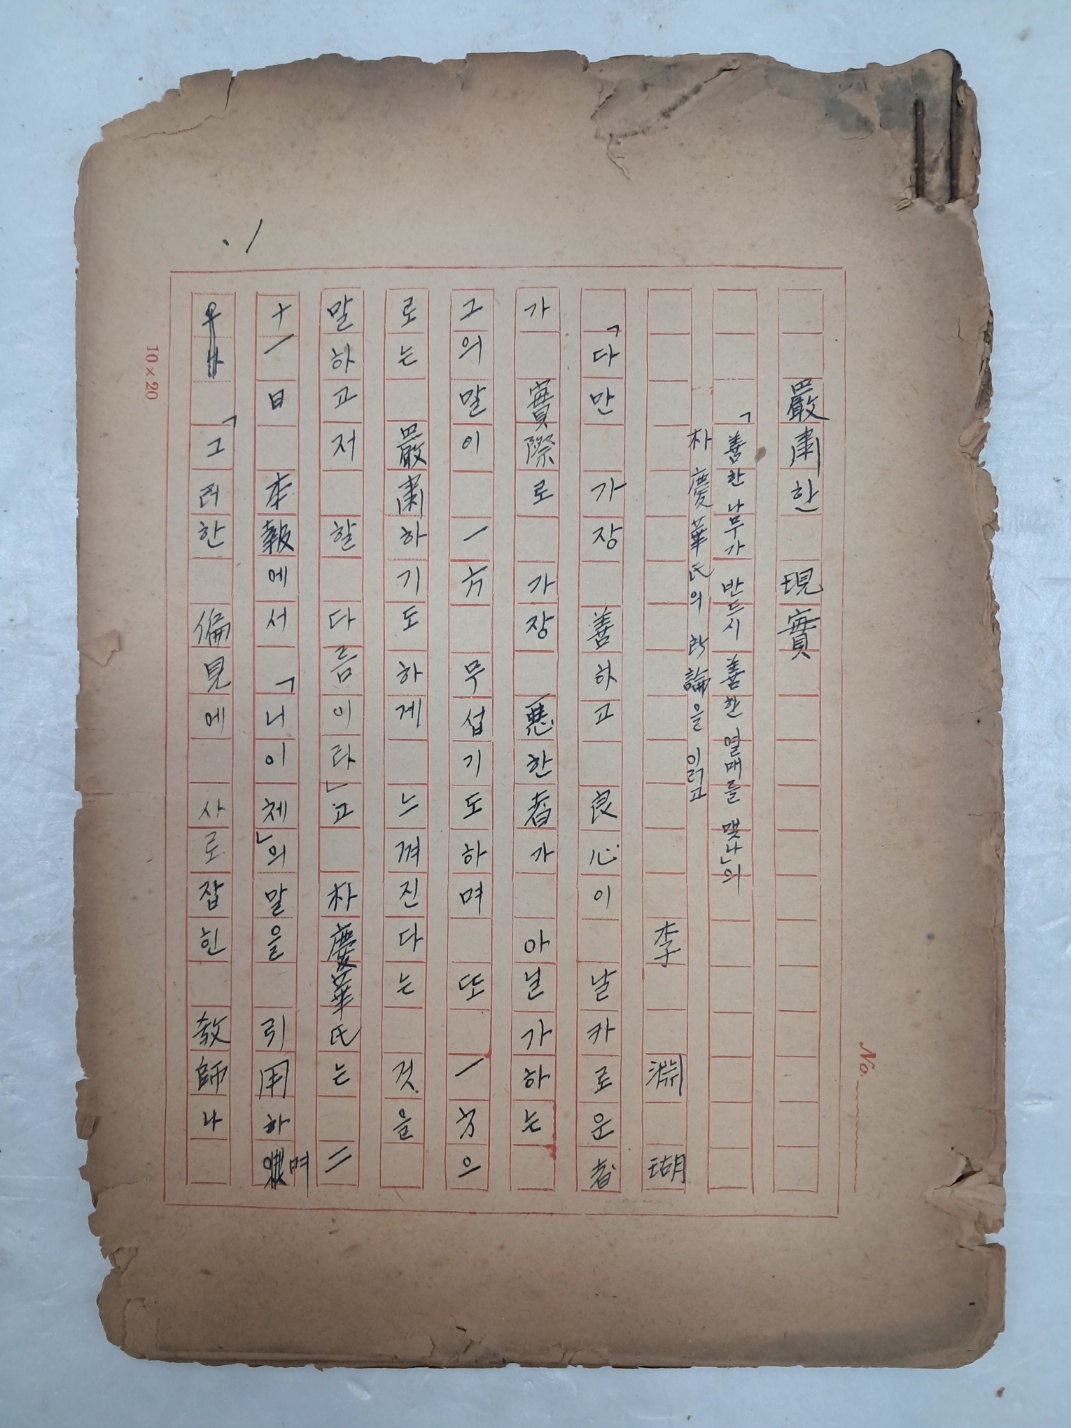 嚴肅한 現實
「善한 나무가 반드시 善한 열매를 맺나」의
朴慶華氏의 論을 읽고
李淵瑚
「다만 가장 善하고 良心이 날카로운 者
가 實際로 가장 惡한 者가 아닐가 하는
그의 말이 一方 무섭기도 하며 또 一方으
로는 嚴肅하기도 하게 느껴진다는 것을
말하고저 할 다름이라」고 朴慶華氏는 二
十一日 本報에서 「니이체」의 말을 引用하며
「그러한 偏見에 사로잡힌 敎師나
1.
10×20
No.